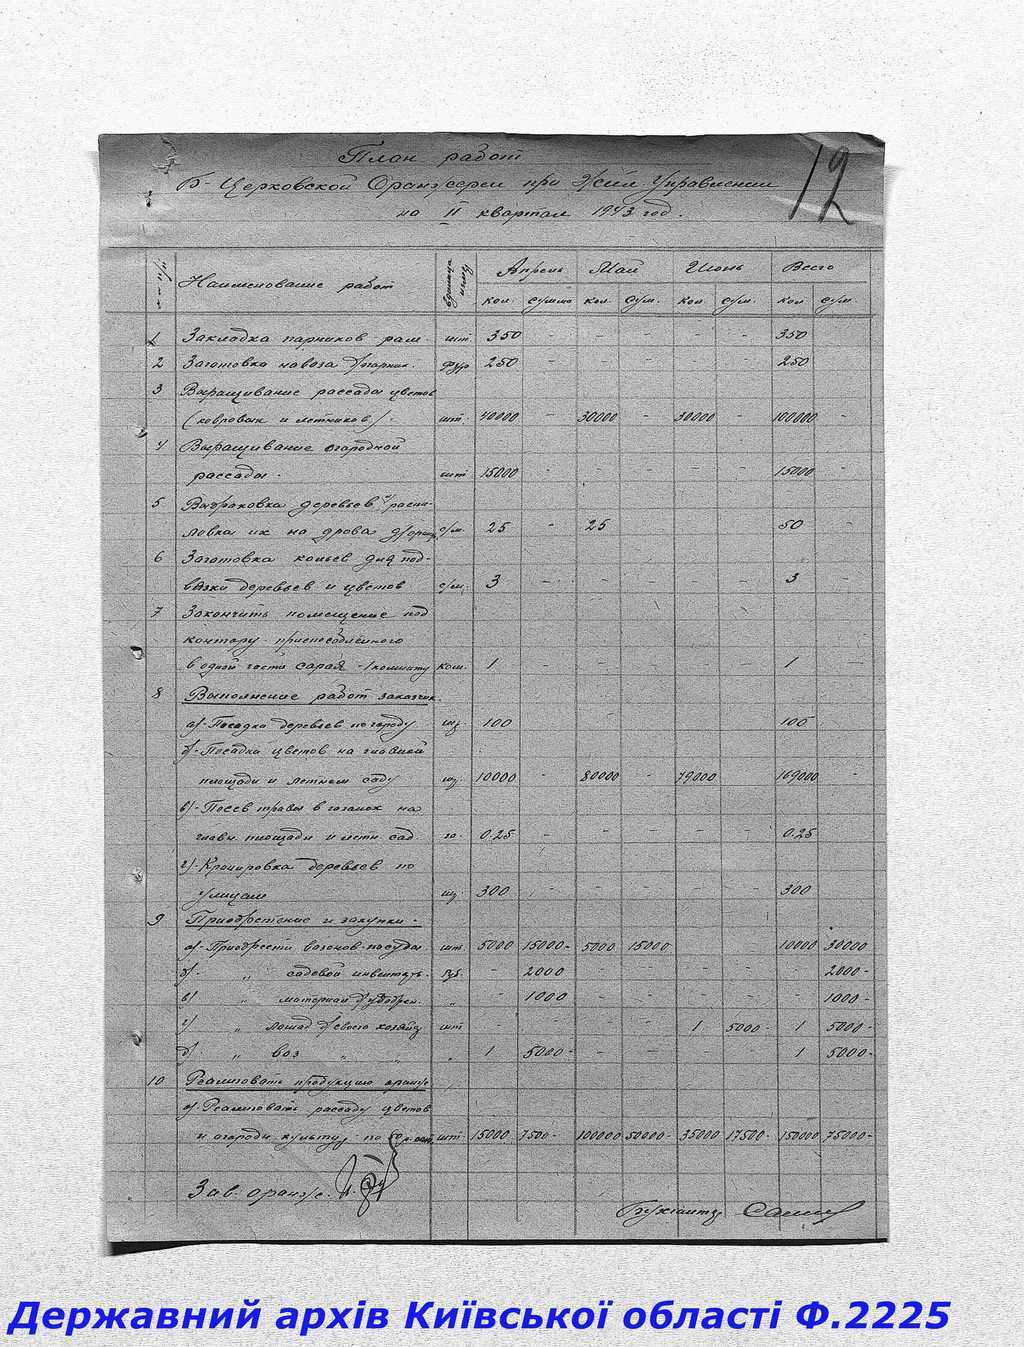 12
План работ
Б-Церковской Оранжереи при Жил Управлении
на II квартал 1943 год.
№№ п/п Наименование работ единица Апрель Май Июнь Всего
кол. сумма кол. сум. кол. сум. кол. сум.
1 Закладка парников рам шт. 350 - - - - - 350
2 Заготовка навоза д/парник. 250 - - - - - 250
3 Выращивание рассады цветов
(ковровых и летников). шт. 40000 - 30000 - 30000 - 100000 -
4 Выращивание огородной
рассады. шт 15000 - - - - - 15000 -
5 Выбраковка деревьев и распи-
ловка их на дрова с/м. 25 - 25 50 -
6 Заготовка кольев для под-
вязки деревьев и цветов с/м. 3 - - - - - 3 -
7 Закончить помещение под
контору приспособленного
в одной части сарая - 1 комнату ком. 1 - - - - - 1 -
8 Выполнение работ заказчик.
а)- Посадка деревьев по городу шт 100 100
б)- Посадки цветов на главной
площади и летнем саду шт. 10000 - 80000 - 79000 169000 -
в)- Посев травы в газонах на
главн. площади и летн. сад. га. 0.25 - - - - - 0.25
г)- Кронировка деревьев по
улицам шт. 300 - - - - - 300
9 Приобретение и закупки.
а)- Приобрести вазонов-посуды шт. 5000 15000- 5000 15000 10000 30000
б)- " садовой инвентарь. руб. - 2000 - - - - 2000-
в) " материал д/удобрен. " - 1000 - - - - 1000-
г) " лошад д/своего шт - - - - 1 5000- 1 5000-
д)- " воз " " " 1 5000- - - - - 1 5000-
10 Реализовать продукцию оранж.
а)- Реализовать рассаду цветов
и огородн культур по 50 шт 15000 7500- 100000 50000- 35000 17500- 150000 75000-
Зав. оранж.
Бухгалтер
Державний архів Київської області Ф.2225